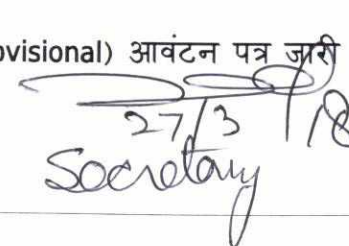 ovisional) आवंटन पत्र जारी
27/3/18
Secretary